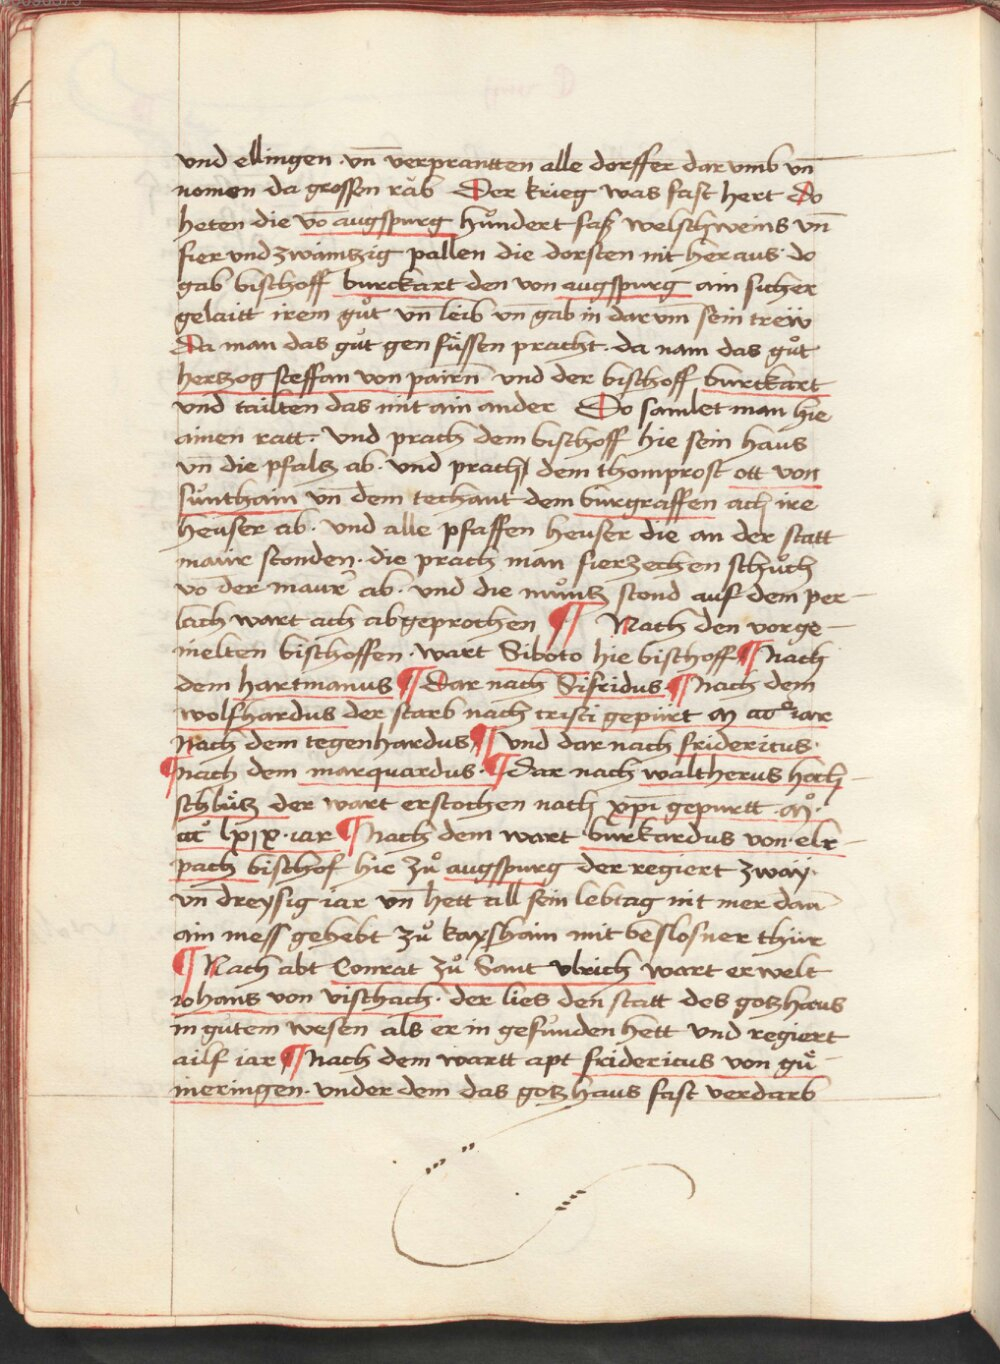 vnd ellingen · vn̄ verprantten alle dorffer dar vmb vn̄
nomen da grossen rǎb Der krieg was fast hert Do
heten die vō augspurg hůndert faß welschweins vn̄
fier vnd zwaintzig pallen die dorsten nit her aus · do
gab bischoff burckart den von augspurg ain sicher
gelaitt irem gůt vn̄ leib vn̄ gab in dar vm sein treẅ
Da man das gůt gen füssen pracht · da nam das gůt
hertzog steffan von pairn vnd der bischoff burckart
vnd tailten das mit ain ander Do samlet man hie
ainen ratt · vnd prach dem bischoff hie sein haus
vn̄ die pfaltz ab · vnd prach dem thomprost ott von
sůnthain vn̄ dem techant dem burgraffen ach ire
heuser ab · vnd alle pfaffen heuser die an der statt
maur stonden · die prach man fierzechen schůch
vō der maur ab · vnd die můntz stond auf dem per-
lach wart ach abgeprochen ¶ Nach den vorge-
melten bischoffen · wart Siboto hie bischoff ¶ Nach
dem hartmanus ¶ Dar nach Sifridus ¶ Nach dem
wolfhardus der starb nach cristi gepürt M ccc° iar
Nach dem tegenhardus ¶ vnd dar nach fridericus ·
¶ nach dem marquardus · ¶ Dar nach waltherus hoch-
schlitz der wart erstochen nach xpi gepurtt · M° ·
ccc° lxix · iar ¶ Nach dem wart burkardus von · elr-
pach bischof hie zů augspurg der regiert zway
vn̄ dreysig iar vn̄ hett all sein lebtag nit mer dan
ain mess gehebt zů kayshaim mit beslosner thür
¶ Nach abt Conrat zů Sant vlrich wart erwelt
iohans von vischach · der lies den statt des gotzhaus
in gutem wesen als er in gefunden hett vnd regiert
ailf iar ¶ Nach dem wartt apt fridericus von gů-
meringen · vnder dem das gotzhaus fast verdarb